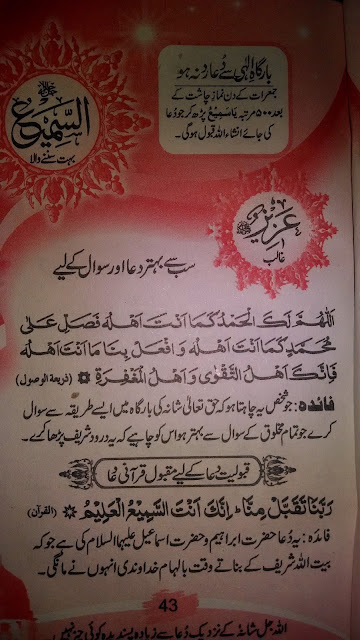 السَّمِیْعُ
جل جلالہ
بہت سننے والا
بارگاہِ الٰہی سے دُعا رد نہ ہو
جمعرات کے دن نمازِ چاشت کے
بعد ۵۰۰ مرتبہ یَاسَمِیْعُ پڑھ کر جو دُعا
کی جائے انشاء اللہ قبول ہوگی۔
عَزِیْزٌ
غالب
سب سے بہتر دعا اور سوال کے لیے
اَللّٰھُمَّ لَکَ الْحَمْدُ کَمَا اَنْتَ اَھْلُهٗ فَصَلِّ عَلٰی
مُحَمَّدٍ کَمَا اَنْتَ اَھْلُهٗ وَافْعَلْ بِنَا مَا اَنْتَ اَھْلُهٗ
فَاِنَّکَ اَھْلُ التَّقْوٰی وَاَھْلُ الْمَغْفِرَةِ (ذریعۃ الوصول)
فائدہ: جو شخص یہ چاہتا ہو کہ حق تعالیٰ شانہ کی بارگاہ میں ایسے طریقہ سے سوال
کرے جو تمام مخلوق کے سوال سے بہتر ہو اس کو چاہیے کہ یہ درود شریف پڑھا کرے۔
قبولیتِ دعا کے لیے مقبول قرآنی دُعا
رَبَّنَا تَقَبَّلْ مِنَّا ؕ اِنَّکَ اَنْتَ السَّمِیْعُ الْعَلِیْمُ (القرآن)
فائدہ: یہ دُعا حضرت ابراہیم و حضرت اسماعیل علیہما السلام کی ہے جو کہ
بیت اللہ شریف کے بناتے وقت بالہام خداوندی انہوں نے مانگی۔
43
اللہ جل شانہٗ کے نزدیک دُعا سے زیادہ پسندیدہ کوئی چیز نہیں